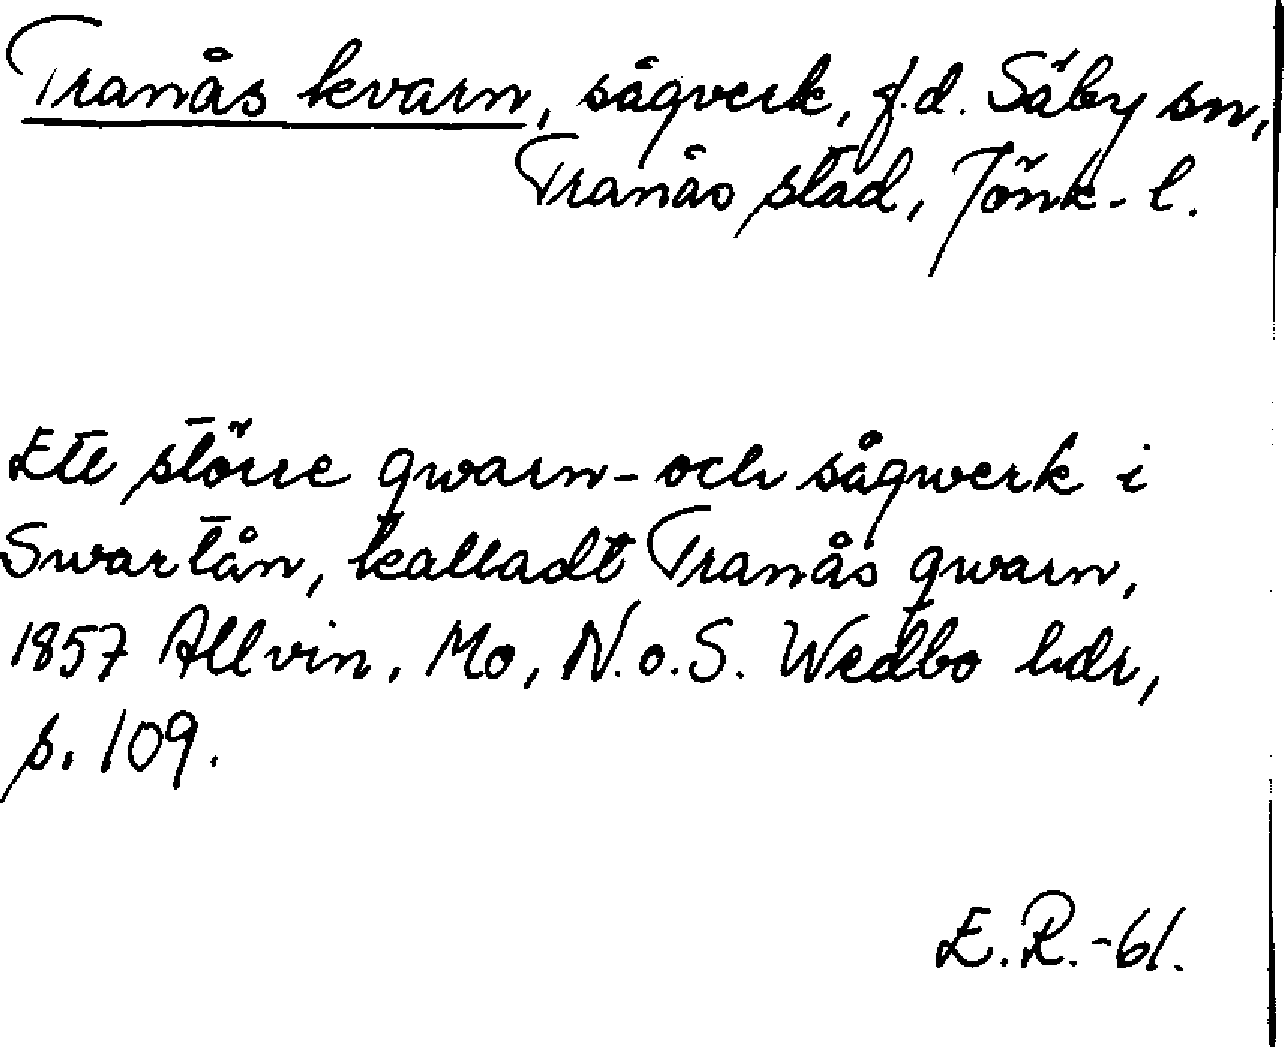 Tranås kvarn, sågverk, f.d. Säby sn,
Tranås stad, Jönk. l.
Ett större qwarn- och sågwerk i
Swartån, kalladt Tranås qwarn,
1857 Allvin, Mo, N. o. S. Wedbo hdr,
s. 109.
E.R.-61.